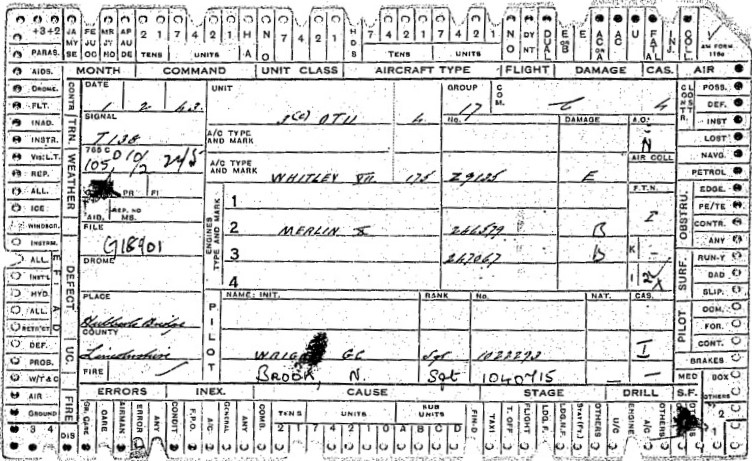 +3 +2 JA FE MR AP 2 1 7 4 2 1 H NO 7 4 2 1 H D S 7 4 2 1 7 4 2 1 NO DY NT DUAL E OR B E AC ON A AC U FATAL INJ COLL.
MY JU JY AU
SE OC NO DE TENS UNITS A TENS UNITS AM FORM 1180
PARAS. MONTH COMMAND UNIT CLASS AIRCRAFT TYPE FLIGHT DAMAGE CAS. AIR
AIDS. CONTR. DATE UNIT GROUP COM. CONSTR. POSS.
DROME. 1 2 43 3(C) OTU 4 17 C 4 DEF.
FLT. SIGNAL No. DAMAGE A.O. INST
INAD. T138 A/C TYPE AND MARK N LOST
INSTR. TRN. 765 C AIR COLL NAVG.
VIS: L.T. WEATHER A/C TYPE AND MARK WHITLEY VII. 175 Z9135 E PETROL
REP. PR PI F.T.N. EDGE.
ALL. REP. NO ENGINES TYPE AND MARK 1 OBSTRU. PE/TE
ICE AID. MS. 2 MERLIN X 246579 B I CONTR.
WINDSCR. FILE 3 247067 B K — ANY
INSTRM. G18901 4 I SURF. RUN-Y
ALL. DEFECT DROME BAD
INST'L E F A D SLIP.
HYD. PLACE PILOT NAME: INIT. RANK No. NAT. CAS. PILOT DOM.
ALL. Hubberts Bridge FOR.
RETR'CT COUNTY CONT.
DEF. UC Lincolnshire GC Sgt 1022293 I BRAKES
PROB. FIRE BROOK, N. Sgt 1040715 — — MED BOX
W/T & C ERRORS INEX. CAUSE STAGE DRILL S.F. OTHERS
AIR FIRE CARE AIRMAN ERROR ANY CONDIT F.P.O. S/C GENERAL ANY COMB. TENS UNITS SUB UNITS FIN-D TAXI T. OFF FLIGHT LDG. F. LDG.N.F. STAT(PT.) OTHERS U/C ENGINE A/C OTHERS
GROUND 2 1 7 4 2 1 0 A B C D 2
3 4 DIS 1